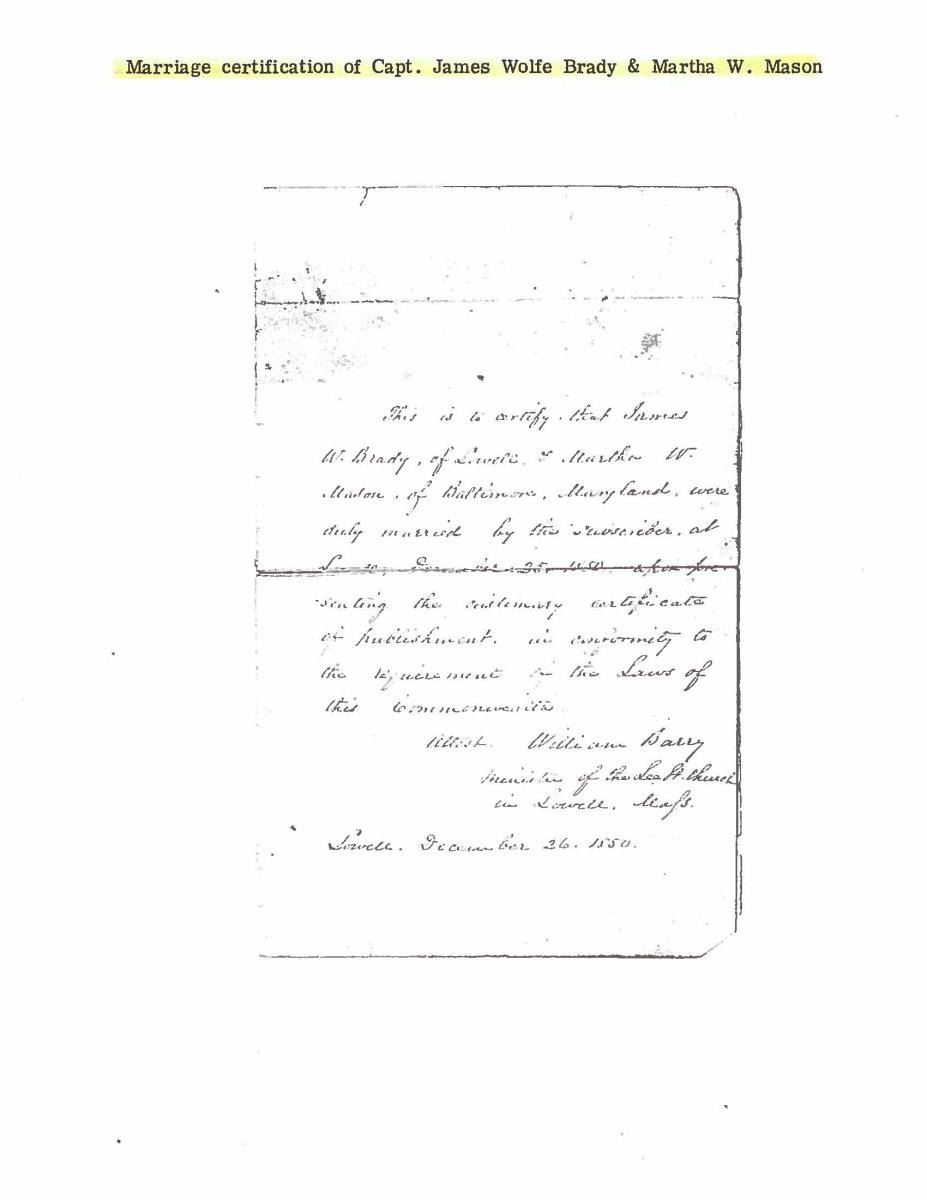 Marriage certification of Capt. James Wolfe Brady & Martha W. Mason
This is to certify that James
W. Brady, of Lowell, & Martha W.
Mason, of Baltimore, Maryland, were
duly married by the subscriber, at
December 25, upon pre-
senting the customary certificate
of publishment, in conformity to
the requirement of the Laws of
this Commonwealth.
Attest. William Barry
Minister of the Lee St. Church
in Lowell, Mass.
Lowell. December 26. 1850.